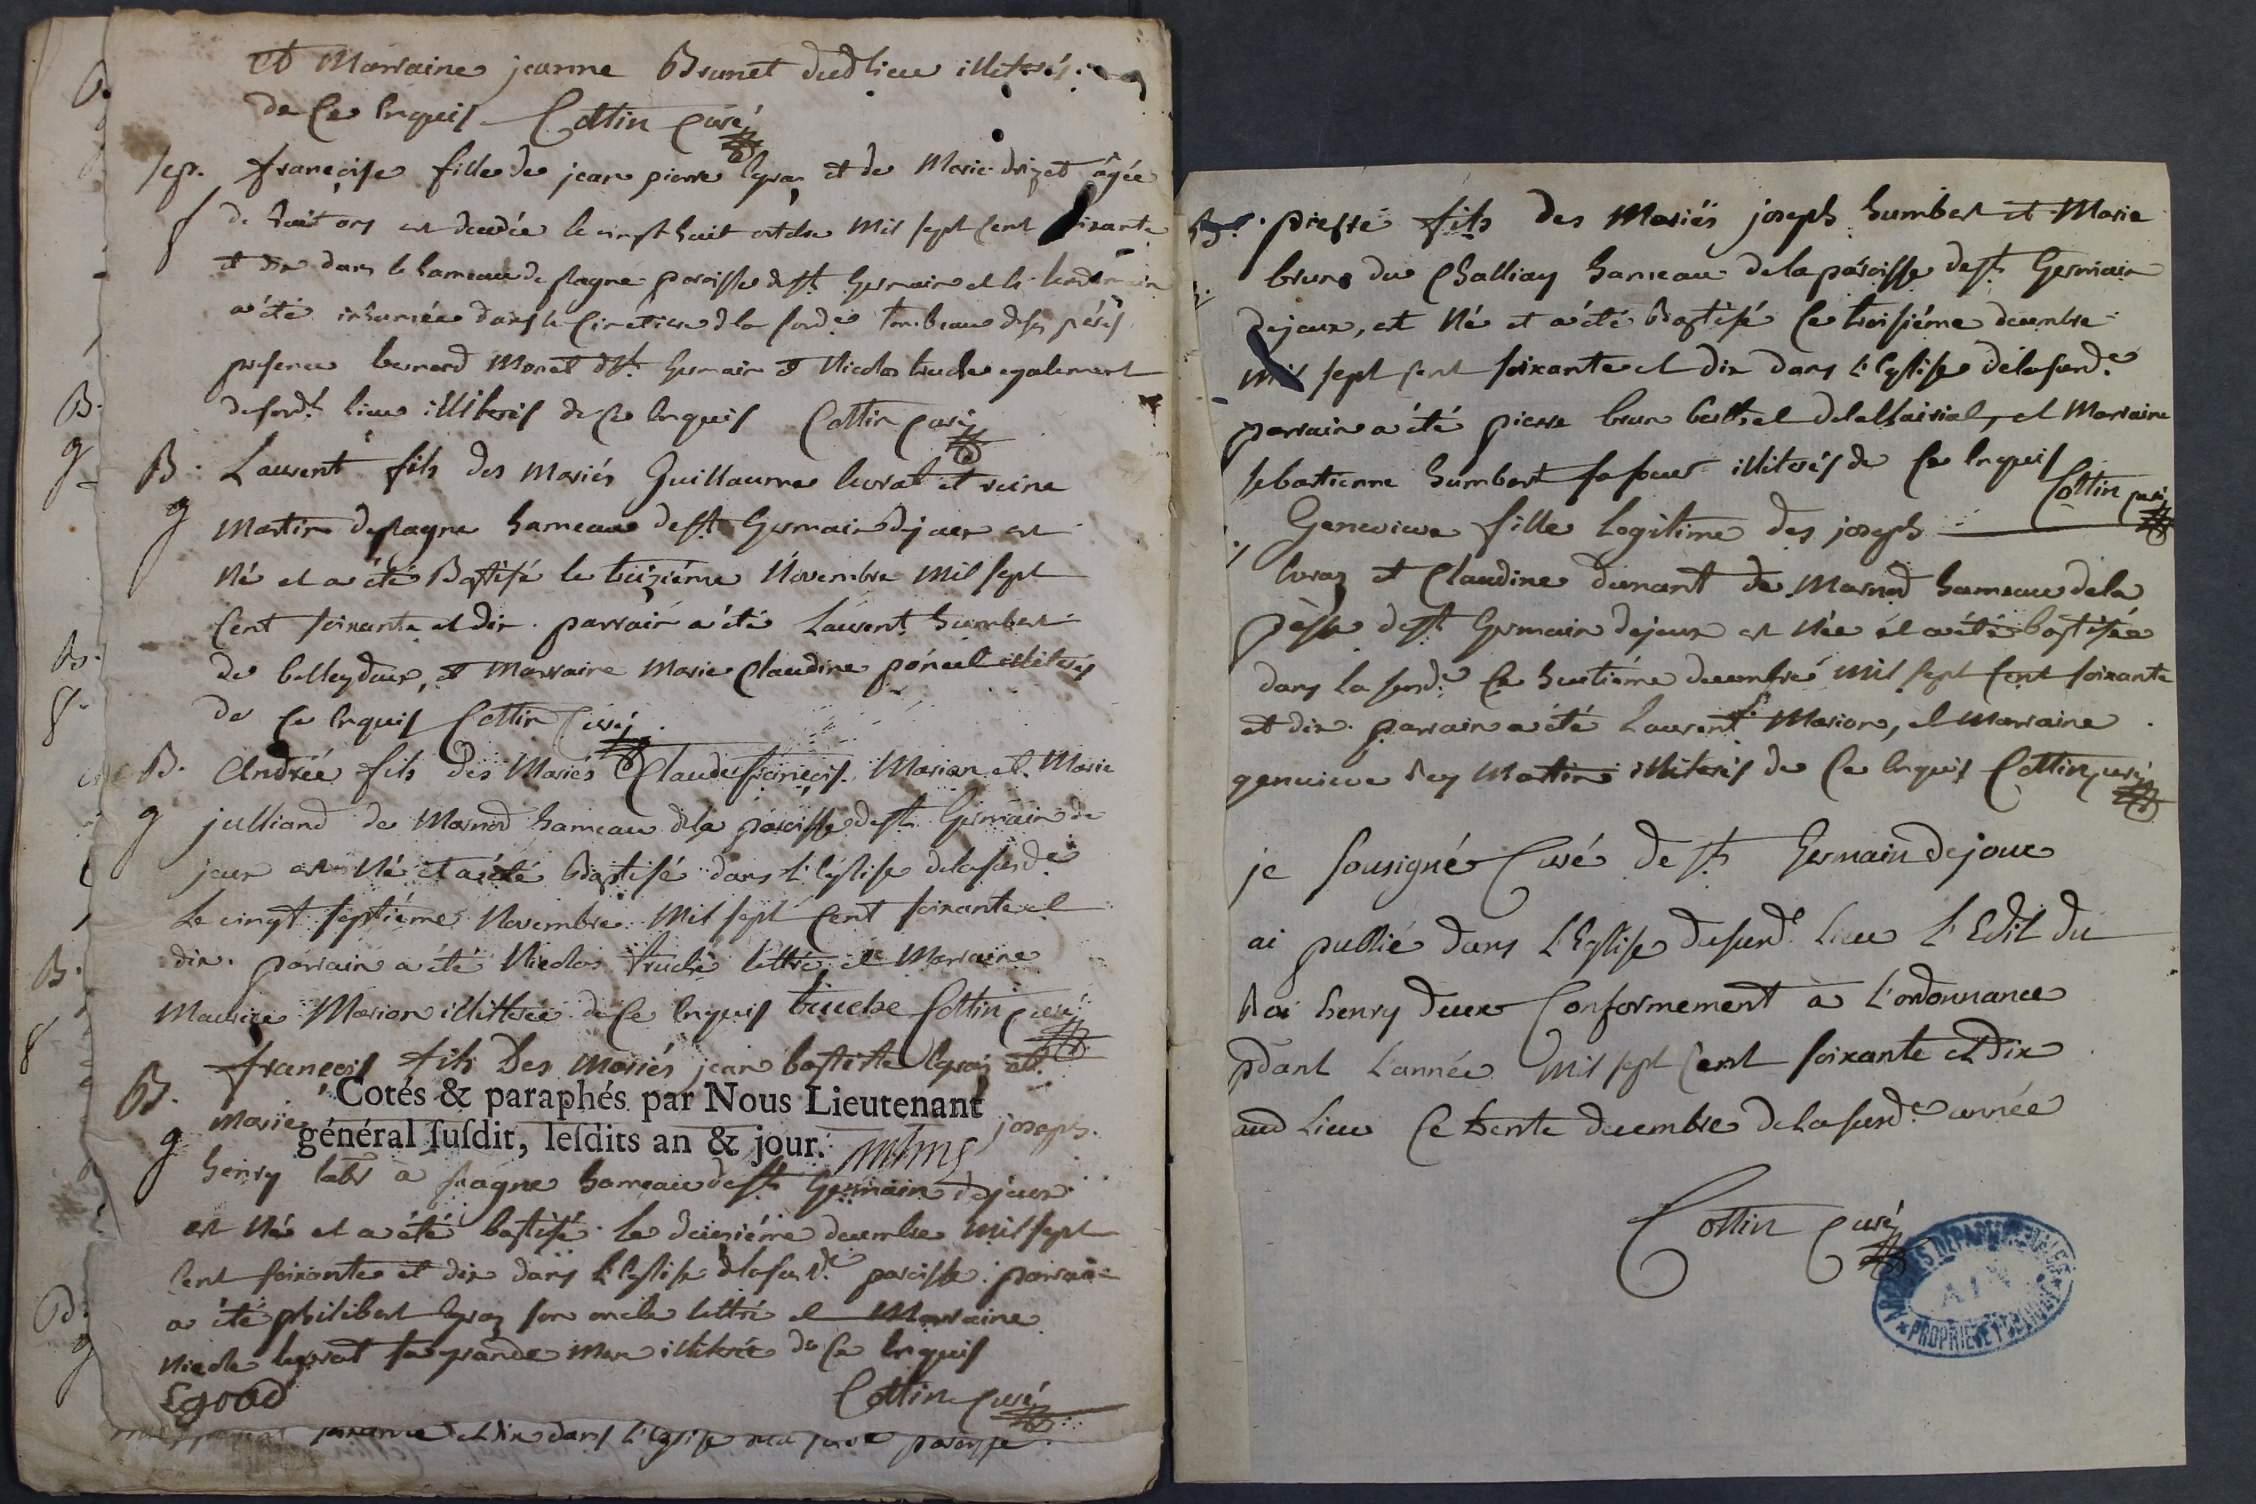 et Marraine jeanne Brunet dud lieu illiterés
de ce enquis Cottin curé
sep. françoise fille de jean pierre et de Marie âgée
de huit ans est decedée le vingt huit octobre Mil sept cent soixante
et dix dans le hameau de stagne paroisse de st Germain et le lendemain
a été inhumée dans le cimetiere d la susd.e tombeau de ses péres
presence bernard Monet d st Germain et Nicolas truche egalement
de susd.t lieu illiterés de ce enquis Cottin curé
B. Laurent fils des Mariés Guillaume levrat et reine
g Martin de stagne hameau de st Germain de joux est
Né et a été Baptisé le treizième Novembre Mil sept
Cent soixante et dix. parrain a été Laurent humbert
de belleydoux, et Marraine Marie Claudine poncet illiterés
de ce enquis Cottin Curé
B. Andrée fils des Mariés Claude françois Marion et Marie
g julliand de Marnod hameau d la paroisse de st Germain de
joux est Né et a été Baptisé dans l'Eglise de la susd.e
Le vingt septième Novembre Mil sept Cent soixante et
dix. parrain a été Nicolas truche lettré et Marraine
Maurice Marion illitterée de ce enquis truche Cottin curé
B. françois fils Des Mariés jean baptiste et
Cotés & paraphés par Nous Lieutenant
g Marie joseph
général susdit, lesdits an & jour.
henry labr à stagne hameau de st Germain de joux
est Né et a été baptisé le deuxième decembre mil sept
Cent soixante et dix dans l'Eglise d la susd.e paroisse. parrain
a été philibert son oncle lettré et Marraine
Nicole levrat sa grande Mere illiterée de ce enquis
Cottin curé
soixante et dix dans l'Eglise de la susd.e paroisse
B. pierre fils des Mariés joseph humbert et Marie
brun du Challiay hameau de la paroisse de st Germain
de joux, est Né et a été Baptisé Ce troisième decembre
Mil sept Cent soixante et dix dans l'Eglise de la susd.e
parrain a été pierre brun berthet, et Marraine
sebastienne humbert sa soeur illiterés de ce enquis Cottin curé
Genevieve fille legitime des joseph
levraz et Claudine dunant de Marnod hameau de la
pàsse de st Germain de joux est Née et a été baptisée
dans la susd.e Ce huitième decembre Mil sept Cent soixante
et dix. parrain a été Laurent Marion, et Marraine
genevieve Rey Martin illiterés de ce enquis Cottin curé
je Sousigné Curé de st Germain de joux
ai publié dans l'Eglise du susd.t lieu l'Edit du
Roi henry deux Conformement à l'ordonnance
pdant l'année Mil sept Cent soixante et dix
aud lieu Ce trente decembre de la susd.e année
Cottin curé
ARCHIVES DEPARTEMENTALES
AIN
PROPRIETE PUBLIQUE